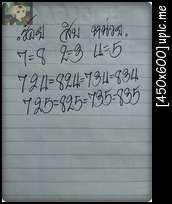 ร้อย สิบ หน่วย.
7=8 2=3 4=5
724=824=734=834
725=825=735=835
[450x600] upic.me